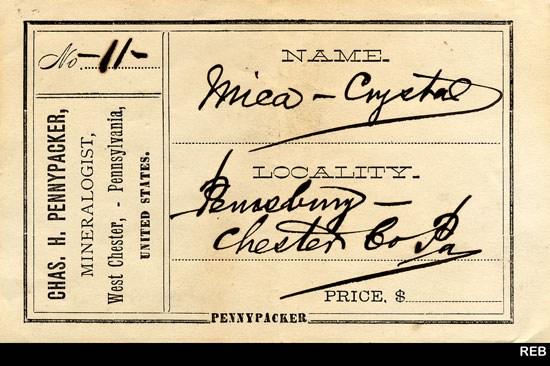 No -11-
CHAS. H. PENNYPACKER,
MINERALOGIST,
West Chester, - Pennsylvania,
UNITED STATES.
NAME.
Mica - Crystal
LOCALITY.
Pennsbury -
Chester Co Pa
PRICE, $
PENNYPACKER
REB